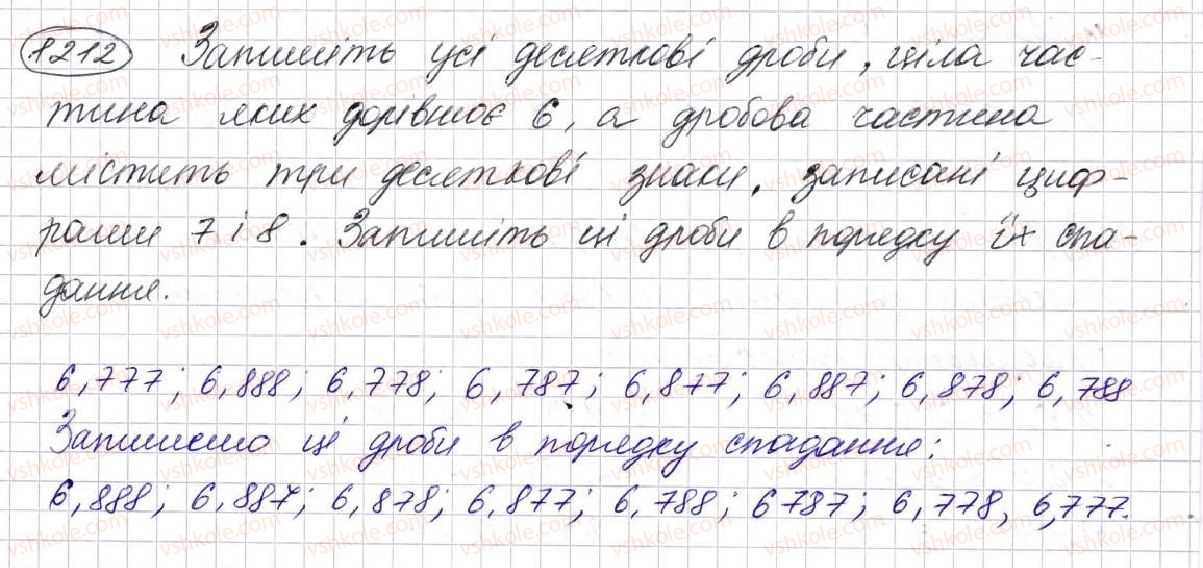 1212 Запишіть усі десяткові дроби, ціла час-
тина яких дорівнює 6, а дробова частина
містить три десяткові знаки, записані циф-
рами 7 і 8. Запишіть ці дроби в порядку їх спа-
дання.
6,777; 6,888; 6,778; 6,787; 6,877; 6,887; 6,878; 6,788
Запишемо ці дроби в порядку спадання:
6,888; 6,887; 6,878; 6,877; 6,788; 6787; 6,778, 6,777.